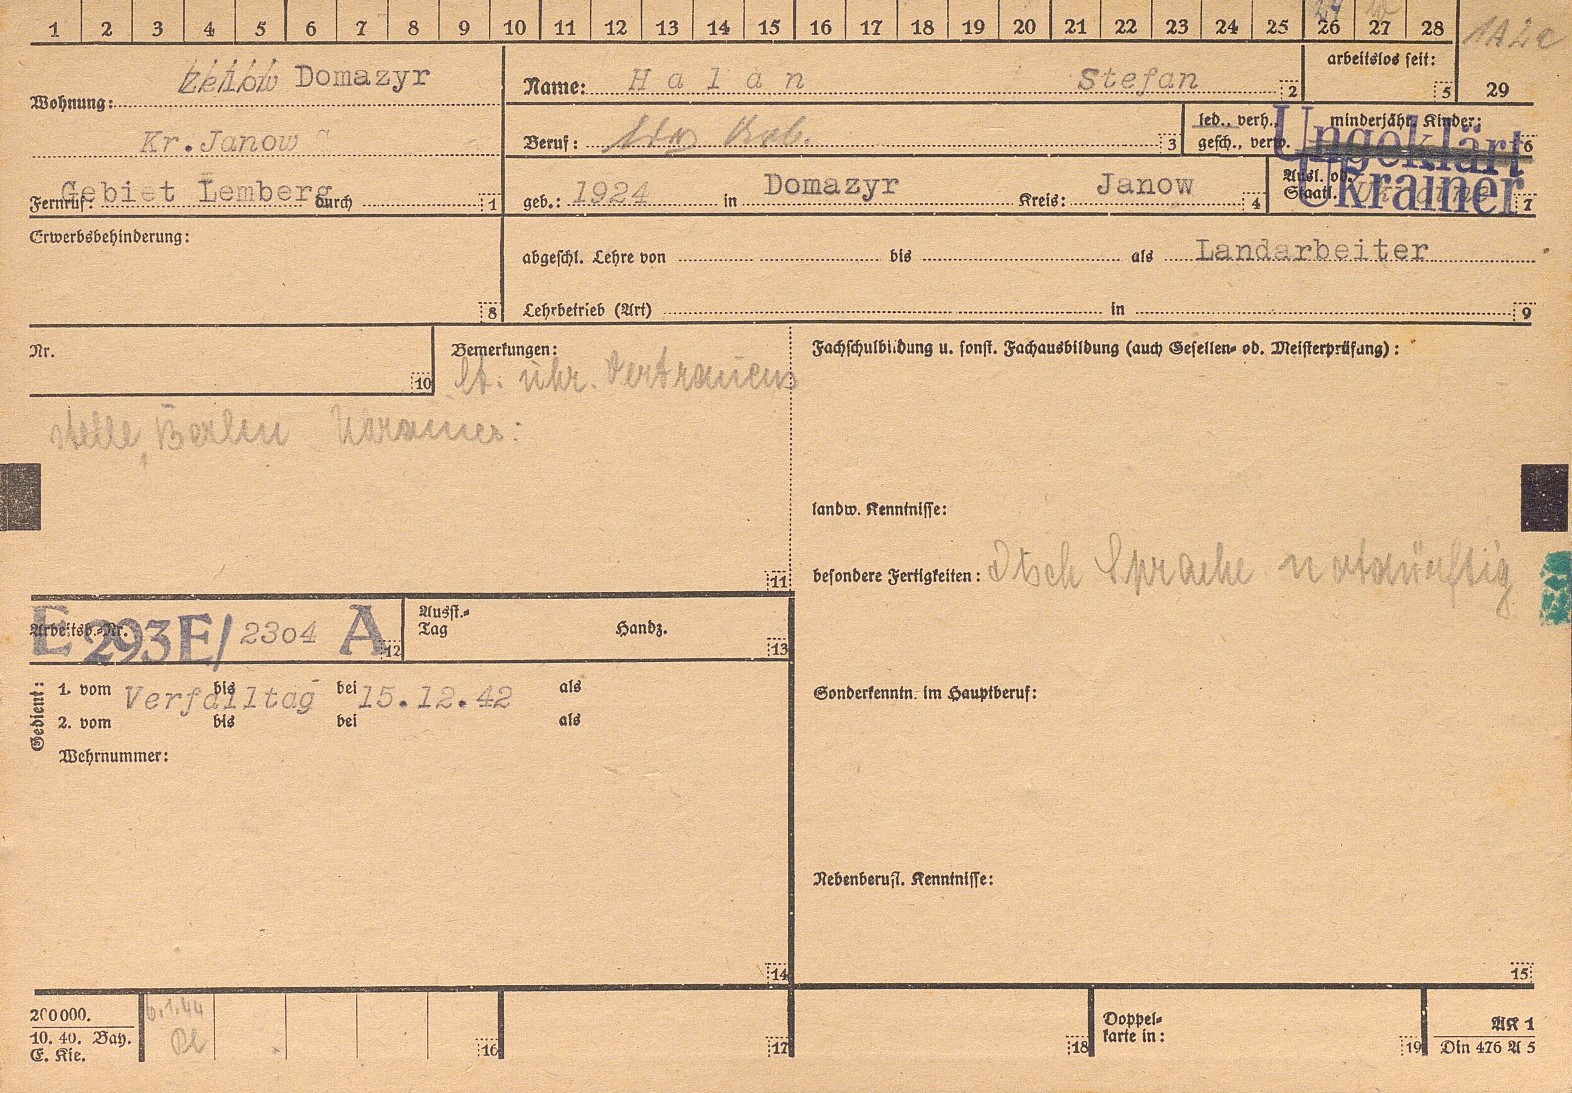 1 2 3 4 5 6 7 8 9 10 11 12 13 14 15 16 17 18 19 20 21 22 23 24 25 26 27 28
29
Wohnung: Domazyr
Kr. Janow
Gebiet Lemberg
Fernruf: durch 1
Name: Halan Stefan 2
arbeitslos seit: 5
Beruf: 3
led., verh., gesch., verw.
minderjähr. Kinder: 6
Ungeklärt
geb.: 1924 in Domazyr Kreis: Janow 4
Ausl. od. Staatl. 7
Ukrainer
Erwerbsbehinderung: 8
abgeschl. Lehre von bis als Landarbeiter
Lehrbetrieb (Art) in 9
Nr. 10
Bemerkungen: lt. ukr. Vertrauens
stelle, Berlin Ukrainer.
11
Fachschulbildung u. sonst. Fachausbildung (auch Gesellen- od. Meisterprüfung):
landw. Kenntnisse:
besondere Fertigkeiten: Dtsch Sprache notdürftig
Sonderkenntn. im Hauptberuf:
Nebenberufl. Kenntnisse:
15
Arbeitsb.-Nr. E 293E/ 2304 A 12
Ausst.-Tag Handz. 13
Gedient:
1. vom bis bei als
Verfalltag 15.12.42
2. vom bis bei als
Wehrnummer:
14
200000.
10. 40. Bay.
E. Kie.
6.1.44
16 17 18
Doppel-
karte in: 19
AK 1
Din 476 A 5